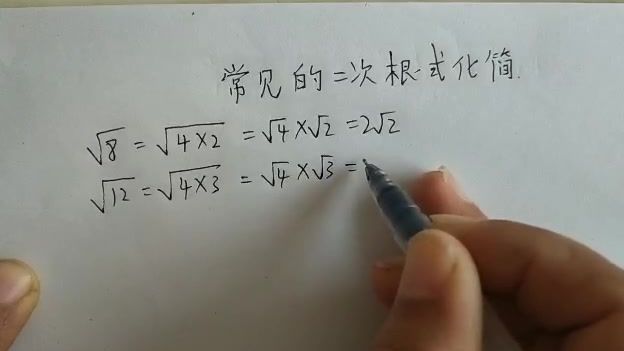 常见的二次根式化简
√8 = √4×2 = √4×√2 = 2√2
√12 = √4×3 = √4×√3 =